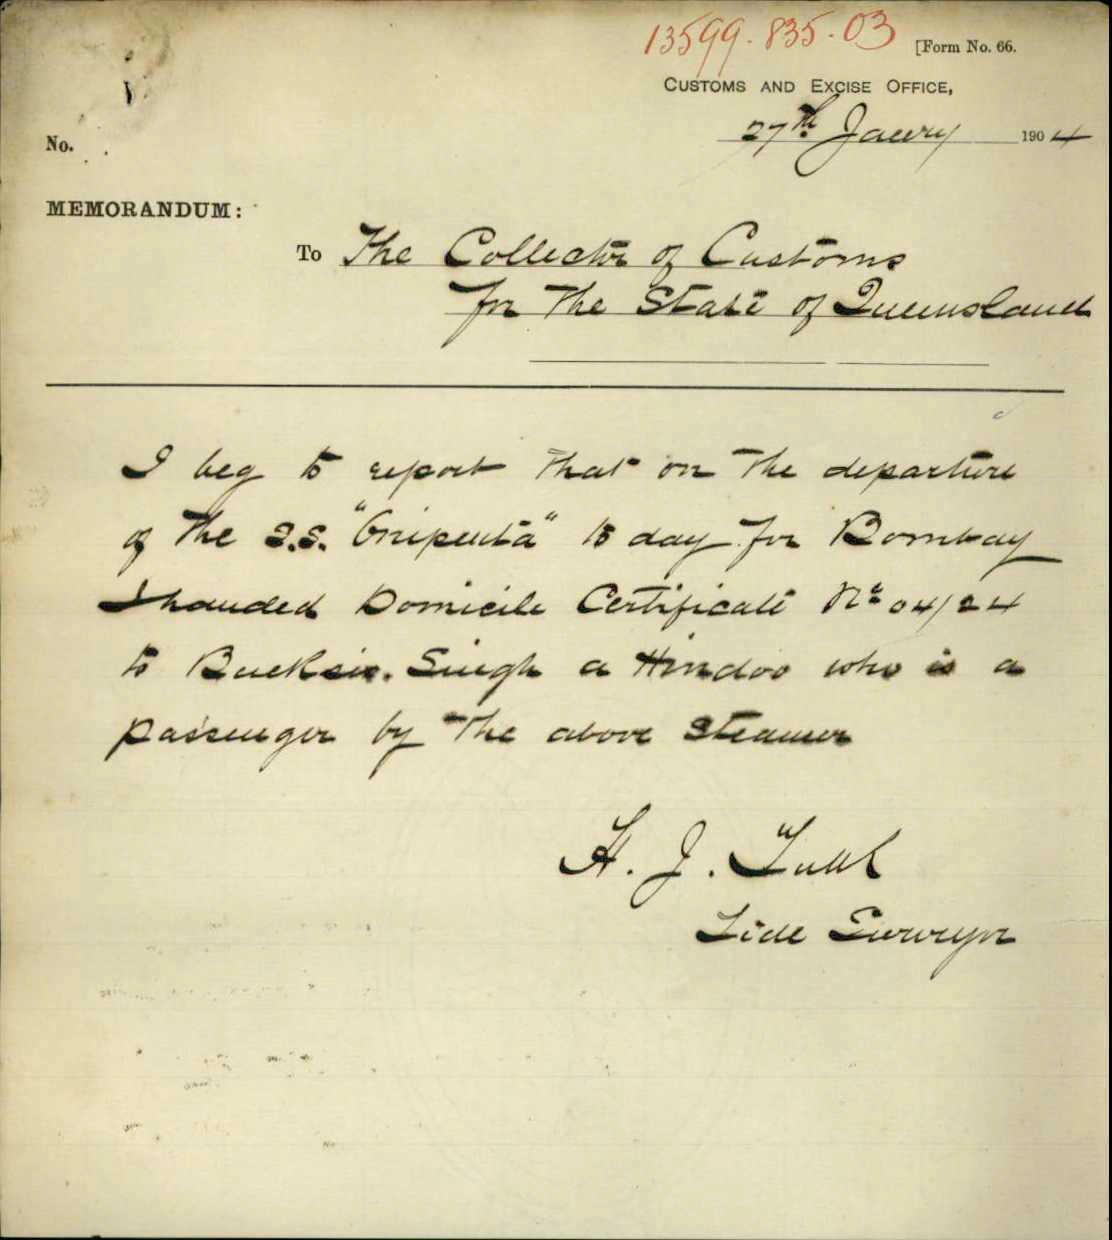 13599.835.03
[Form No. 66.
CUSTOMS AND EXCISE OFFICE,
27th Jaury 1904
No.
MEMORANDUM:
To The Collector of Customs
for the State of Queensland
I beg to report that on the departure
of the S.S. "Onipenta" to day for Bombay
I handed Domicile Certificate No 04/24
to Bucksin. Singh a Hindoo who is a
passenger by the above Steamer
H. J. Tubb
Tide Surveyor